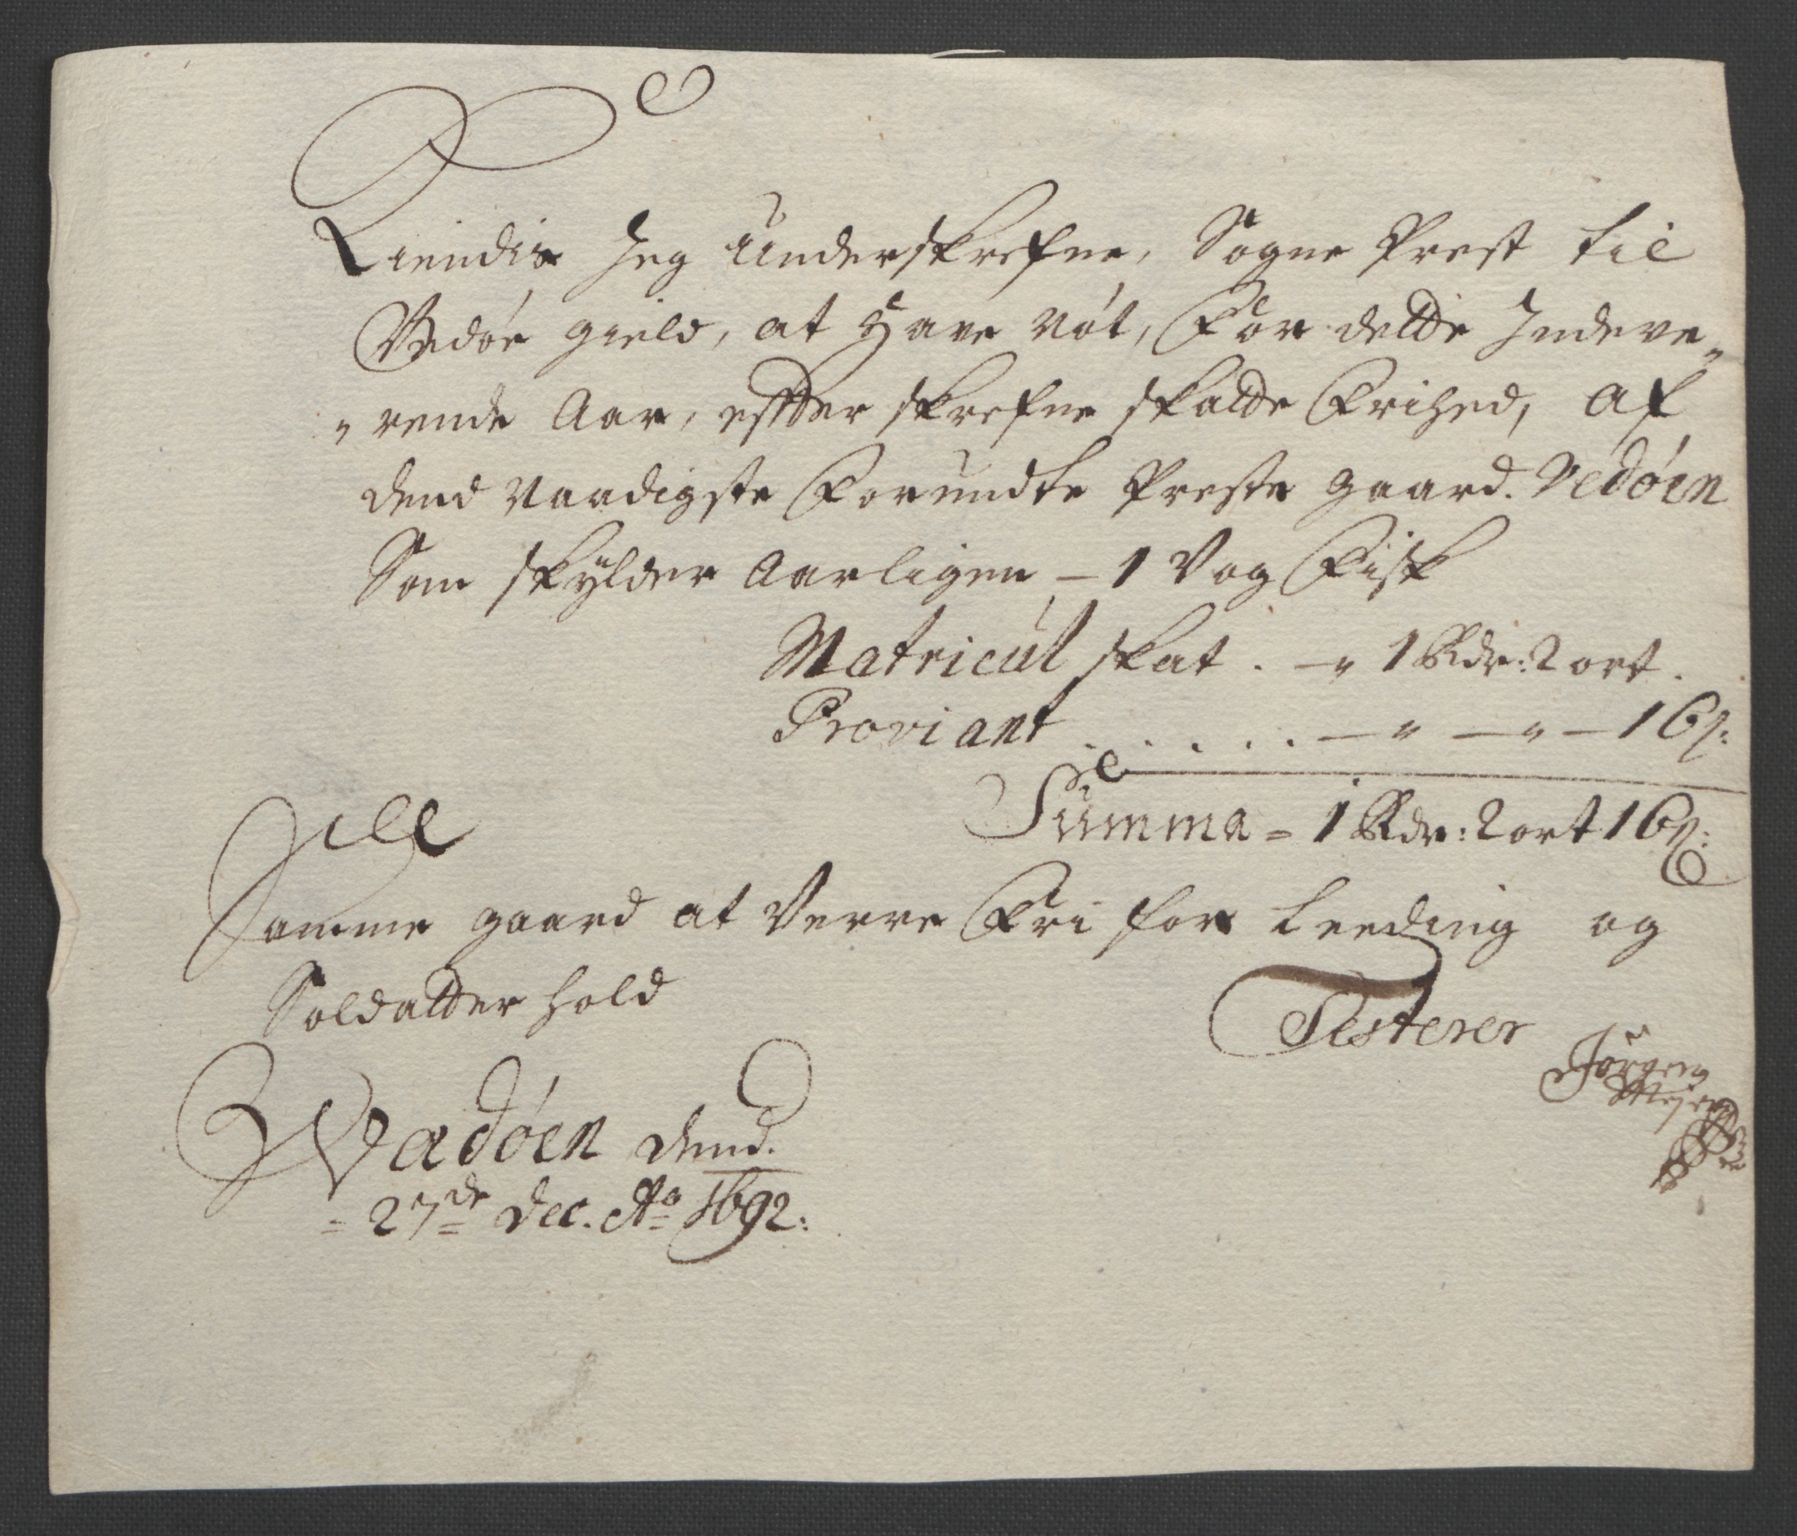 Kiendis Jeg Underskrefne, Sogne Prest til
Vedøe gield, at Have nót, For dette Indeve„
„rende Aar, effter skrefne skatte Frihed, Af
dend naadigste Forundte Preste gaard. Vedøen
Som skylder Aarligen – 1 Vog Fisk
Matricul skat . – „ 1 Rdr: 2 ort .
Proviant . . . . . – „ – „ – 16 s:
Summa = 1 Rdr: 2 ort 16 s:
Item
Samme gaard at Verre Fri for Leeding og
Soldatter hold
Testerer
Jørgen
Wadøen dend.
= 27de Dec. Ao 1692: